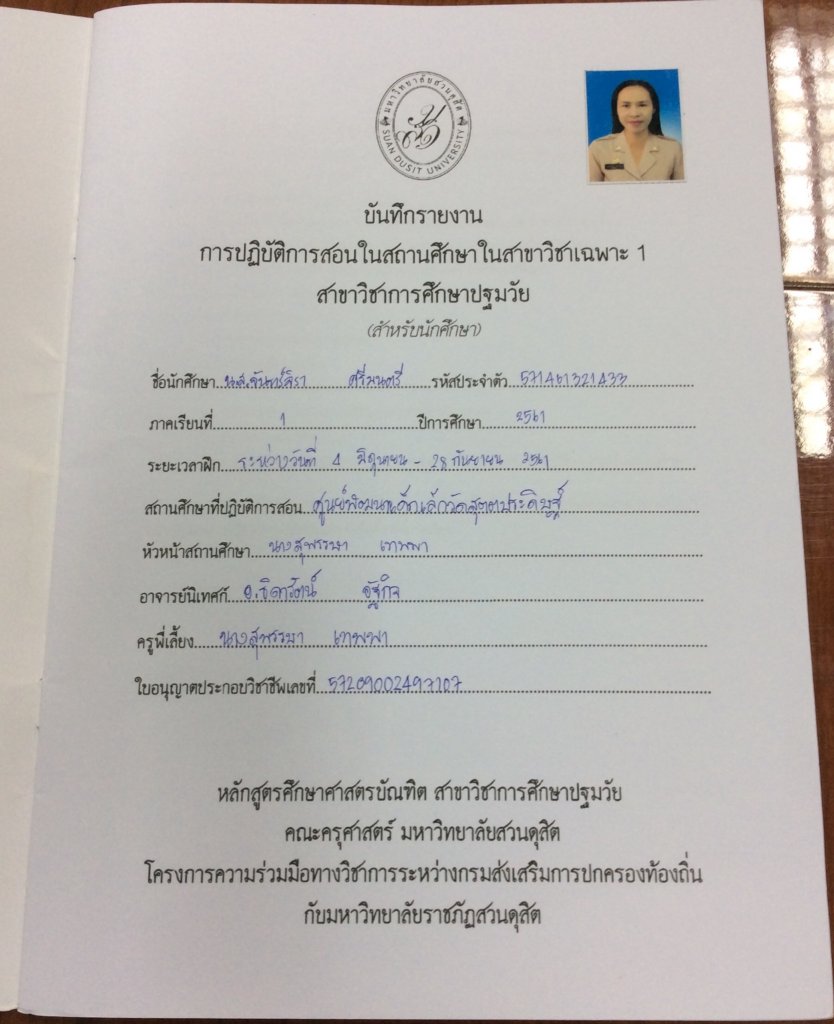 มหาวิทยาลัยสวนดุสิต
SUAN DUSIT UNIVERSITY
บันทึกรายงาน
การปฏิบัติการสอนในสถานศึกษาในสาขาวิชาเฉพาะ 1
สาขาวิชาการศึกษาปฐมวัย
(สำหรับนักศึกษา)
ชื่อนักศึกษา น.ส.จันทร์จิรา ศรีมนตรี รหัสประจำตัว 571461321433
ภาคเรียนที่ 1 ปีการศึกษา 2561
ระยะเวลาฝึก ระหว่างวันที่ 4 มิถุนายน - 28 กันยายน 2561
สถานศึกษาที่ปฏิบัติการสอน ศูนย์พัฒนาเด็กเล็กวัดสุตตประดิษฐ์
หัวหน้าสถานศึกษา นางสุพรรษา เทพพา
อาจารย์นิเทศก์ อ.ธิดารัตน์
ครูพี่เลี้ยง นางสุพรรษา เทพพา
ใบอนุญาตประกอบวิชาชีพเลขที่ 57209002497107
หลักสูตรศึกษาศาสตรบัณฑิต สาขาวิชาการศึกษาปฐมวัย
คณะครุศาสตร์ มหาวิทยาลัยสวนดุสิต
โครงการความร่วมมือทางวิชาการระหว่างกรมส่งเสริมการปกครองท้องถิ่น
กับมหาวิทยาลัยราชภัฏสวนดุสิต